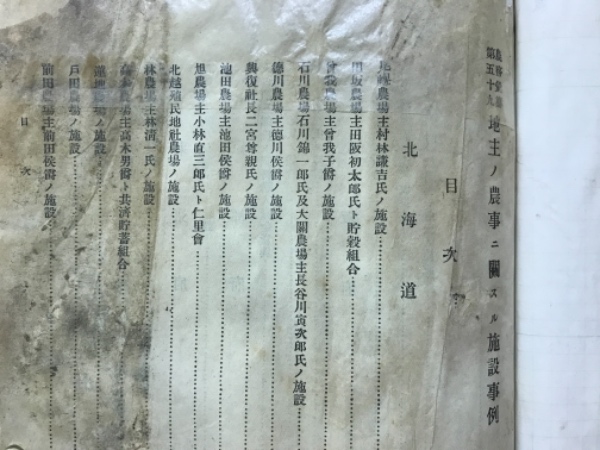 第五十九 地主ノ農事ニ關スル施設事例
目次
北海道
農場主村林謙吉氏ノ施設
田阪農場主田阪初太郎氏ト貯穀組合
曾我農場主曾我子爵ノ施設
石川農場石川錦一郎氏及大關農場主長谷川寅次郎氏ノ施設
德川農場主德川侯爵ノ施設
興復社長二宮尊親氏ノ施設
池田農場主池田侯爵ノ施設
旭農場主小林直三郎氏ト仁里會
北越殖民地社農場ノ施設
林農場主林淸一氏ノ施設
高木農場主高木男爵ト共濟貯蓄組合
農場ノ施設
戶田農場ノ施設
前田農場主前田侯爵ノ施設
目次